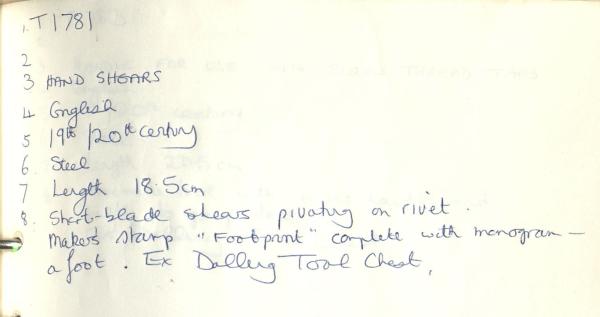 1. T1781
2
3 HAND SHEARS
4 English
5 19th/20th century
6. Steel
7 Length 18.5cm
8. Short-blade shears pivoting on rivet.
Makers stamp "Footprint" complete with monogram —
a foot. Ex Dalling Tool Chest.